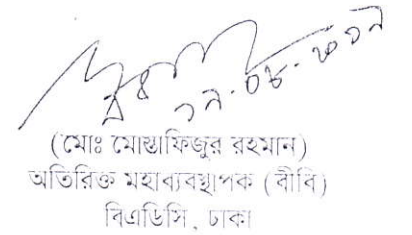 (মোঃ মোস্তাফিজুর রহমান)
অতিরিক্ত মহাব্যবস্থাপক (বীবি)
বিএডিসি, ঢাকা